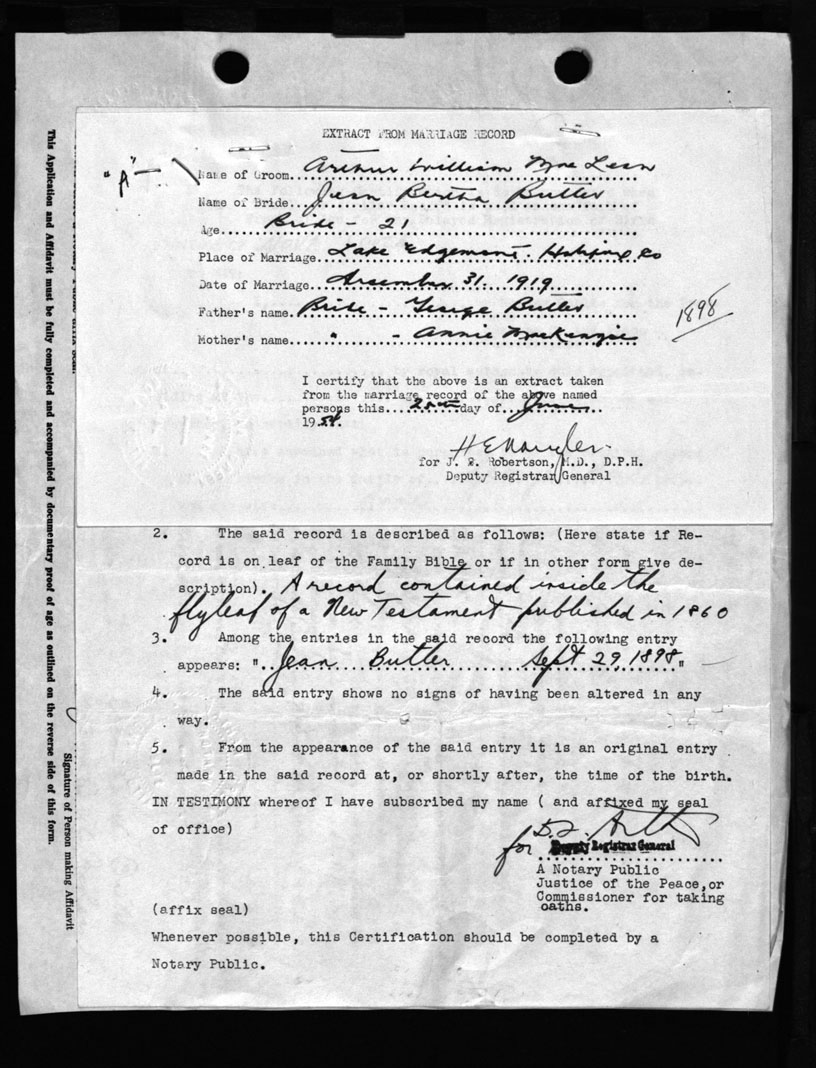 EXTRACT FROM MARRIAGE RECORD
"A" —
Name of Groom. Arthur William MacLean
Name of Bride. Jean Bertha Butler
Age..... Bride - 21
Place of Marriage. Lake Edgemont. Halifax Co
Date of Marriage. December 31. 1919.
Father's name. Bride - George Butler
Mother's name..... " - Annie MacKenzie
1898
I certify that the above is an extract taken
from the marriage record of the above named
persons this... 25th day of... June...
1954.
for J. S. Robertson, M.D., D.P.H.
Deputy Registrar General
2. The said record is described as follows: (Here state if Re-
cord is on leaf of the Family Bible or if in other form give de-
scription). A record contained inside the
flyleaf of a New Testament published in 1860
3. Among the entries in the said record the following entry
appears: "..Jean.... Butler........ Sept 29, 1898"
4. The said entry shows no signs of having been altered in any
way.
5. From the appearance of the said entry it is an original entry
made in the said record at, or shortly after, the time of the birth.
IN TESTIMONY whereof I have subscribed my name ( and affixed my seal
of office)
for Deputy Registrar General
A Notary Public
Justice of the Peace, or
Commissioner for taking
oaths.
(affix seal)
Whenever possible, this Certification should be completed by a
Notary Public.
This Application and Affidavit must be fully completed and accompanied by documentary proof of age as outlined on the reverse side of this form.
Signature of Person making Affidavit